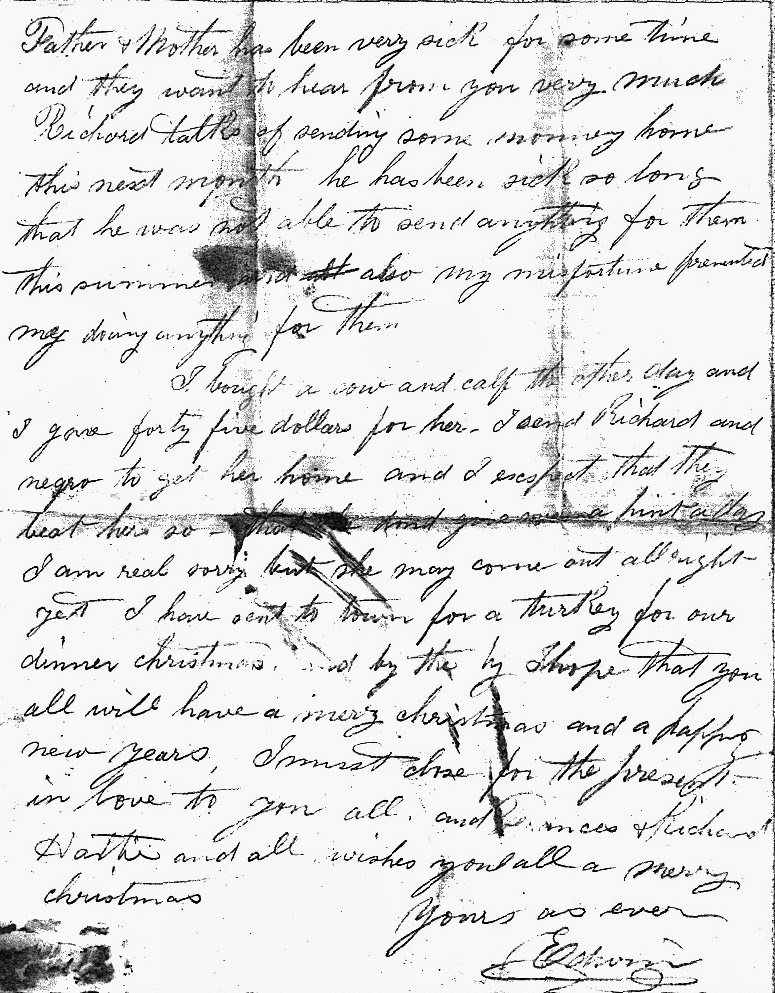 Father & Mother has been very sick for some time
and they want to hear from you very much
Richard talks of sending some monney home
this next month he has been sick so long
that he was not able to send anything for them
this summer and also my misfortune prevented
my doing anything for them
I bought a cow and calf the other day and
I gave forty five dollars for her. I send Richard and
negro to get her home and I exspect that they
beat her so - that she dond give a pint a day
I am real sorry but she may come out all right
yet I have sent to town for a turkey for our
dinner christmas. and by the by I hope that you
all will have a merry christmas and a happy
new years, I must close for the present.
in love to you all. and Frances & Richard
Hattie and all wishes you all a merry
christmas
Yours as ever
Edwin